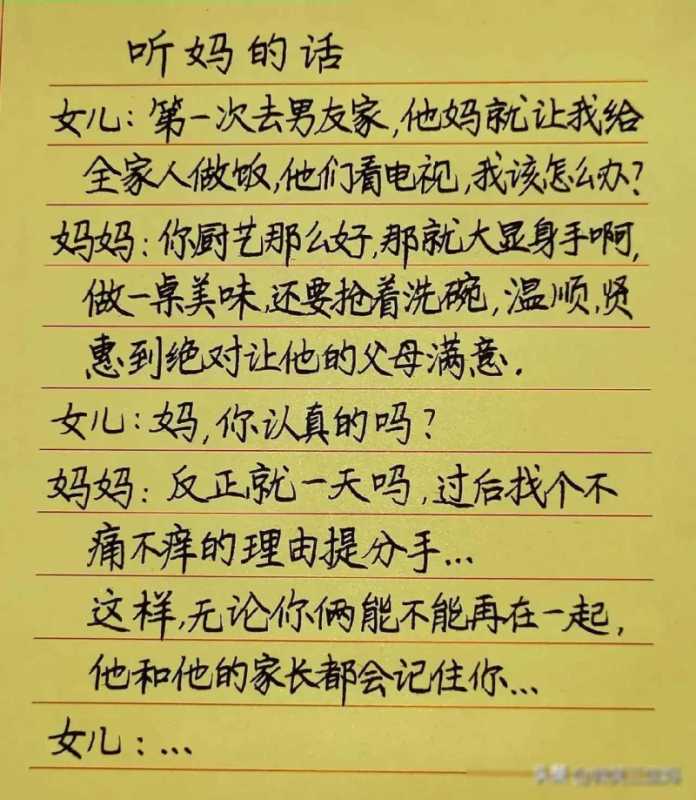 听妈的话
女儿：第一次去男友家，他妈就让我给
全家人做饭，他们看电视，我该怎么办？
妈妈：你厨艺那么好，那就大显身手啊，
做一桌美味，还要抢着洗碗，温顺，贤
惠到绝对让他的父母满意．
女儿：妈，你认真的吗？
妈妈：反正就一天吗，过后找个不
痛不痒的理由提分手…
这样，无论你俩能不能再在一起，
他和他的家长都会记住你…
女儿：…